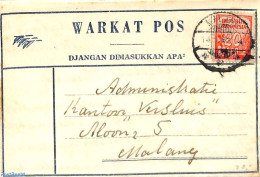 WARKAT POS
DJANGAN DIMASUKKAN APA²
Administratie
Kantoor "Versluis"
Aloon² 5
Malang